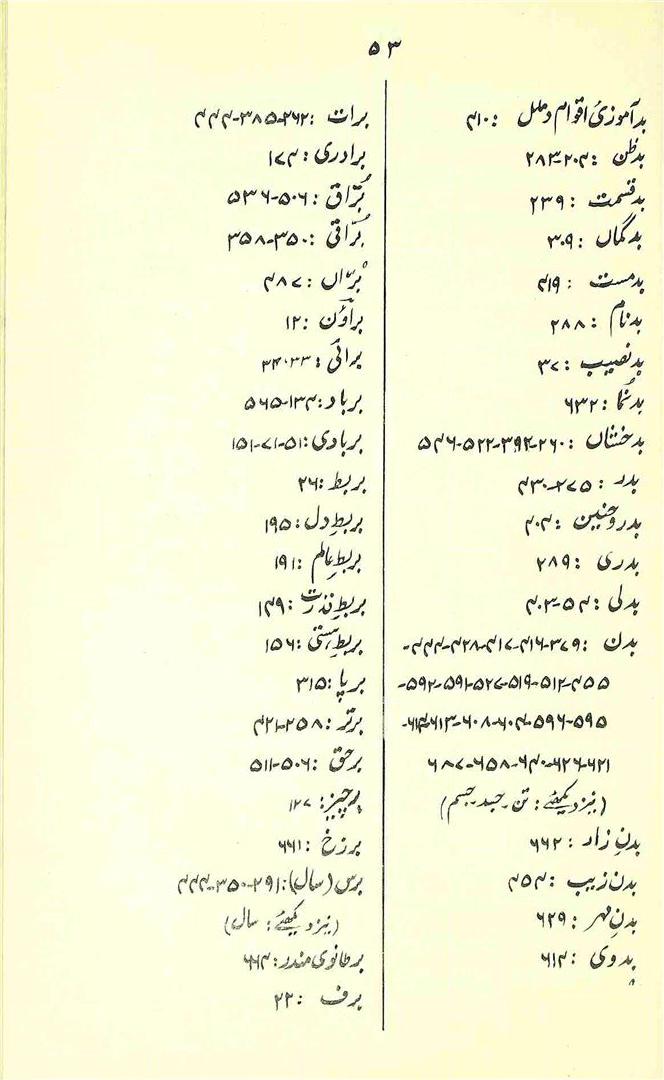 ۵۳
بدآموزیٔ اقوام و ملل : ۴۱۰
بدظن : ۲۰۴-۲۸۳
بدقسمت : ۲۳۹
بدگماں : ۳۰۹
بدمست : ۴۱۹
بدنام : ۲۸۸
بدنصیب : ۳۷
بدنُما : ۶۳۲
بدخشاں : ۲۶۰-۳۹۲-۵۲۲-۵۴۶
بدر : ۲۷۵-۴۳۰
بدر و حنین : ۴۰۴
بدری : ۲۸۹
بدلی : ۵۴-۴۰۲
بدن : ۳۷۹-۴۱۶-۴۱۷-۴۲۸-۴۴۴-
۴۵۵-۵۱۲-۵۱۹-۵۲۷-۵۹۱-۵۹۲-
۵۹۵-۵۹۶-۶۰۴-۶۰۸-۶۱۳-۶۱۴-
۶۲۱-۶۲۶-۶۴۰-۶۵۸-۶۸۷
(نیز دیکھئے : تن۔ جسد۔ جسم)
بدنِ زار : ۶۶۲
بدن زیب : ۴۵۴
بدنِ مہر : ۶۲۹
بدوی : ۶۱۴
برات : ۲۶۲-۳۸۵-۴۴۴
برادری : ۱۷۴
بُرّاق : ۵۰۶-۵۳۶
بُرّاقی : ۳۵۰-۳۵۸
بُرّاں : ۴۸۷
براؤن : ۱۲
برائی : ۳۳-۳۴
برباد : ۱۳۴-۵۶۵
بربادی : ۵۱-۷۱-۱۵۱
بربط : ۲۶
بربطِ دل : ۱۹۵
بربطِ عالم : ۱۹۱
بربطِ قدرت : ۱۴۹
بربطِ ہستی : ۱۵۶
برپا : ۳۱۵
برتر : ۲۵۸-۴۲۱
برحق : ۵۰۶-۵۱۱
ہرچیز : ۱۲۷
برزخ : ۶۶۱
برس (سال) : ۲۹۱-۳۵۰-۴۴۴
(نیز دیکھئے : سال)
برطانوی مندر : ۶۶۴
برف : ۲۲